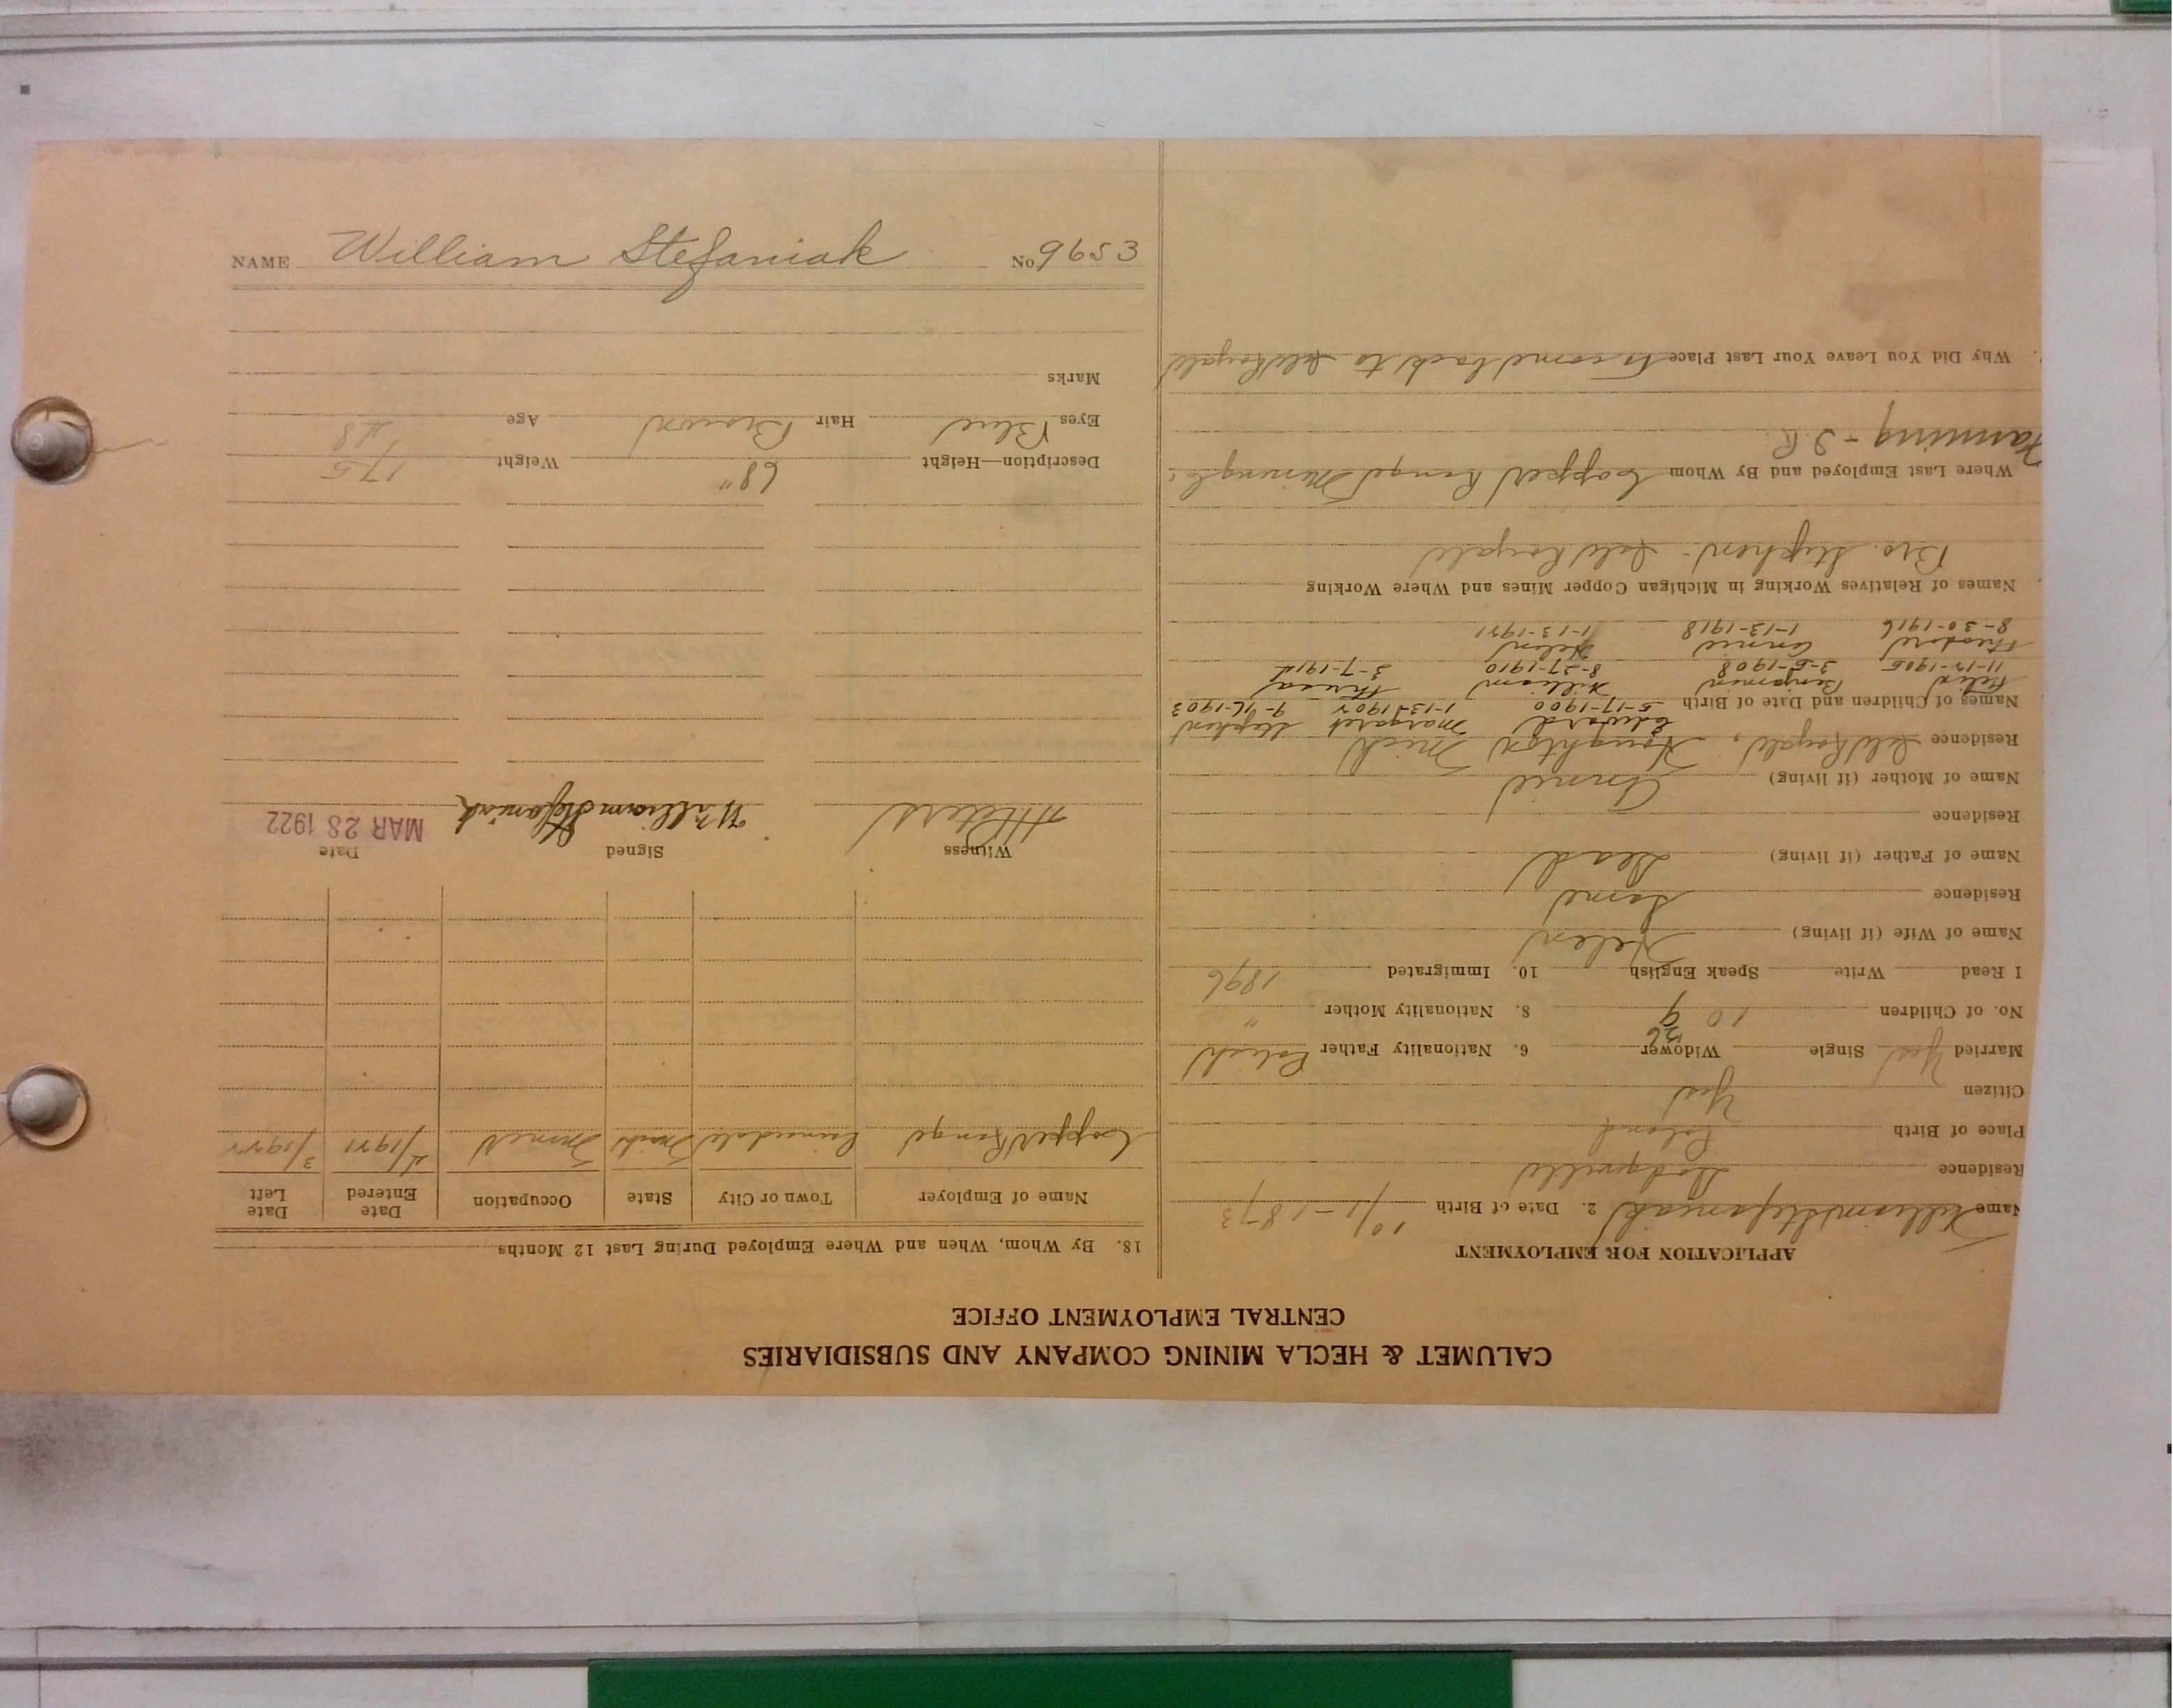 NAME William Stefaniak No. 9653
CALUMET & HECLA MINING COMPANY AND SUBSIDIARIES
CENTRAL EMPLOYMENT OFFICE
APPLICATION FOR EMPLOYMENT
Name William Stefaniak 2. Date of Birth 10/1-1873
Residence Dodgeville
Place of Birth Poland
Citizen Yes
Married Yes Single Widower 6. Nationality Father Polish
No. of Children 10 9 8. Nationality Mother "
I Read Write Speak English 10. Immigrated 1896
Name of Wife (if living) Helen
Residence Same
Name of Father (if living) Dead
Residence
Name of Mother (if living) Annie
Residence Isle Royale, Houghton Mich
Names of Children and Date of Birth Edward 5-17-1900 Margaret 1-13-1902 Stephen 9-16-1903
Felix Benjamin William Theresa
11-15-1905 3-5-1908 8-27-1910 3-7-1914
Theodore Annie Helen
8-30-1916 1-13-1918 1-13-1921
Names of Relatives Working in Michigan Copper Mines and Where Working
Bro. Stephen - Isle Royale
Where Last Employed and By Whom Copper Range Mining Co.
Tramming - I.R.
Why Did You Leave Your Last Place To come back to Isle Royale
18. By Whom, When and Where Employed During Last 12 Months
Name of Employer Town or City State Occupation Date Entered Date Left
Copper Range Painesdale Mich Miner 4/1921 3/1922
Witness Signed Date
H Peters William Stefaniak MAR 28 1922
Description—Height 68" Weight 175
Eyes Blue Hair Brown Age 48
Marks